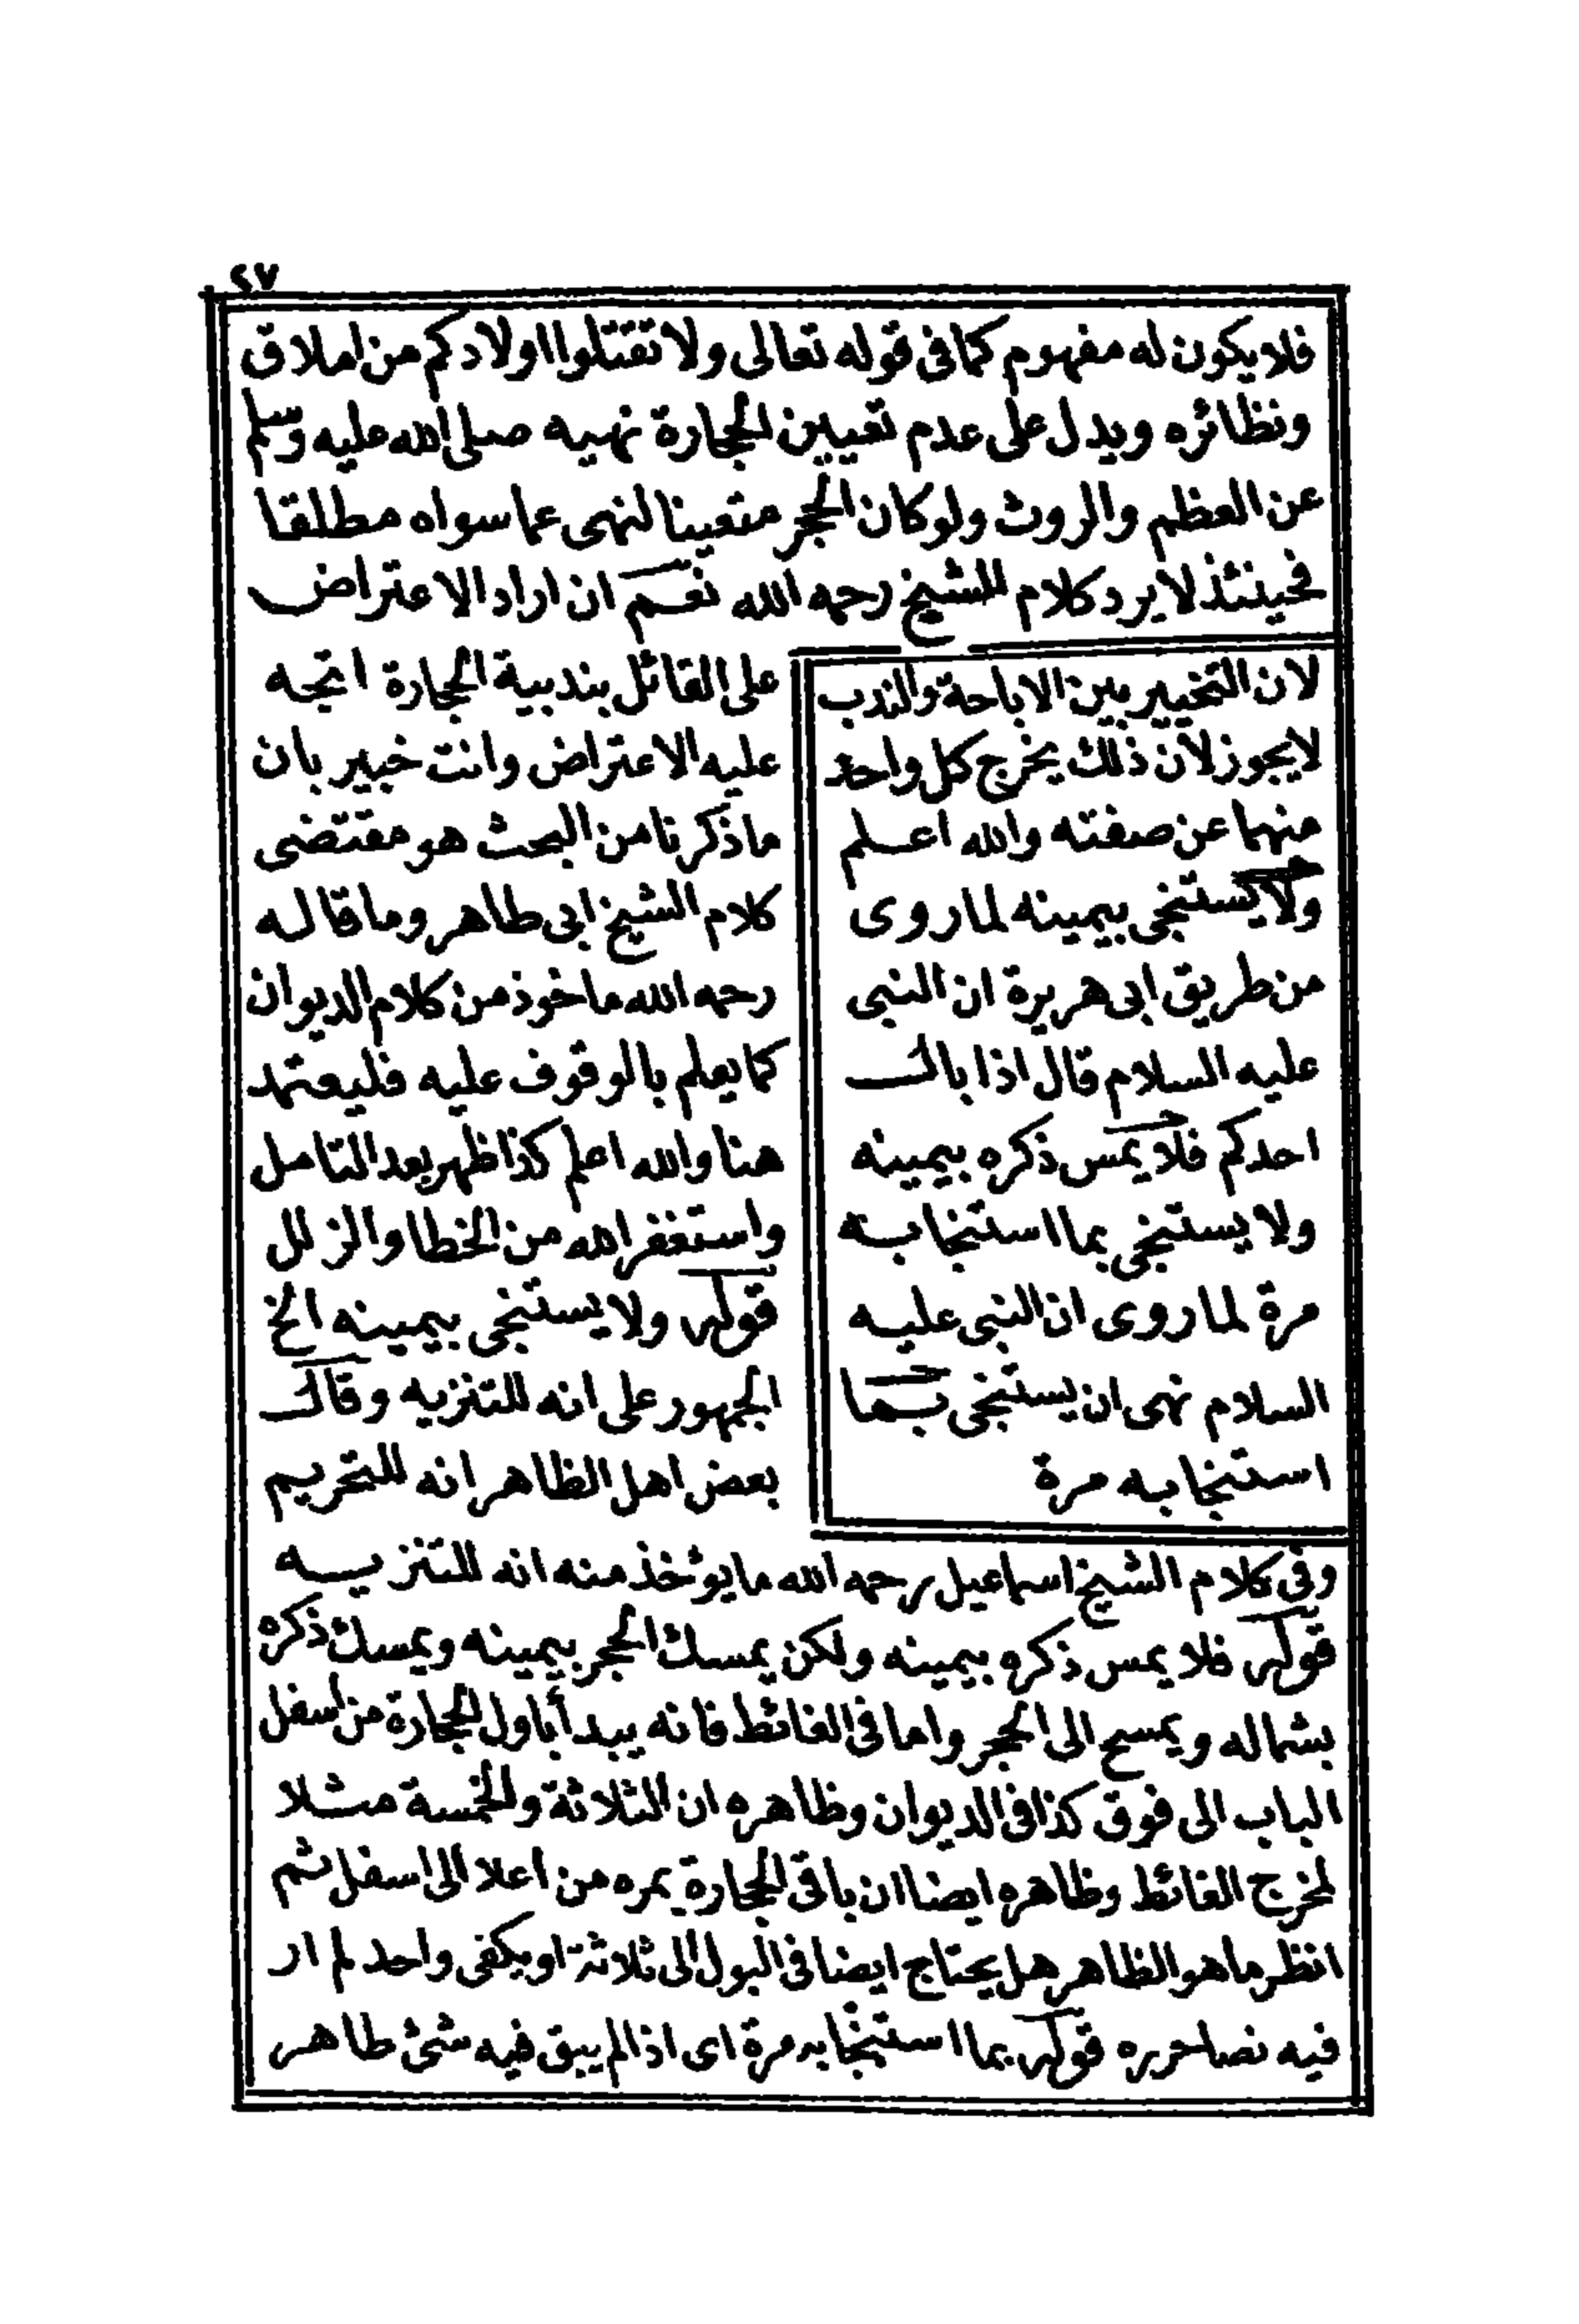 ٢٧
فلا يكون له مفهوم كما فى قوله تعالى ولا تقتلوا اولادكم من املاق
ونظائره ويدل على عدم تعيين الحجارة نهيه صلى الله عليه وسلم
عن العظم والروث ولو كان الحجر متعينا لنهى عما سواه مطلقا
فحينئذ لا يرد كلام الشيخ رحمه الله نعم ان اراد الاعتراض
لان التخيير بين الاباحة والندب
لا يجوز لان ذلك يخرج كل واحد
منهما عن صفته والله اعلم
ولا يستنجى بيمينه لما روى
من طريق ابى هريرة ان النبى
عليه السلام قال اذا بال
احدكم فلا يمس ذكره بيمينه
ولا يستنجى بما استنجا به
مرة لما روى ان النبى عليه
السلام نهى ان يستنجى بما
استنجا به مرة
على القائل بندبية الحجارة اتجه
عليه الاعتراض وانت خبير بان
ما ذكرنا من البحث هو مقتضى
كلام الشيخ ابى طاهر وما قاله
رحمه الله ماخوذ من كلام الديوان
كما يعلم بالوقوف عليه فليعتمد
هنا والله اعلم كذا ظهر بعد التامل
واستغفر الله من الخطا والزلل
قوله ولا يستنجى بيمينه الخ
الجمهور على انه للتنزيه وقال
بعض اهل الظاهر انه للتحريم
وفى كلام الشيخ اسماعيل رحمه الله ما يوئخذ منه انه للتنزيه
قوله فلا يمس ذكره بيمينه ولكن يمسك الحجر بيمينه ويمسك ذكره
بشماله ويمسح الى الحجر واما فى الغائط فانه يبدأ باول الحجارة من اسفل
الباب الى فوق كذا فى الديوان وظاهره ان الثلاثة والخمسة مثلا
لمخرج الغائط وظاهره ايضا ان باقى الحجارة يمره من اعلا الى اسفل ثم
انظر ما هو الظاهر هل يحتاج ايضا فى البول الى ثلاثة او يكفى واحد لم ار
فيه نصا حرره قوله بما استنجا به مرة اى اذا لم يبق فيه شئ طاهر